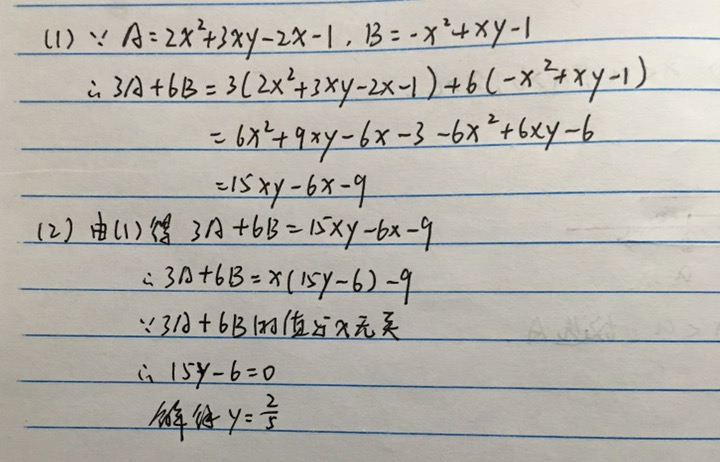 (1) ∵ A=2x²+3xy-2x-1，B=-x²+xy-1
∴ 3A+6B=3(2x²+3xy-2x-1)+6(-x²+xy-1)
=6x²+9xy-6x-3-6x²+6xy-6
=15xy-6x-9
(2) 由(1)得 3A+6B=15xy-6x-9
∴ 3A+6B=x(15y-6)-9
∵ 3A+6B的值与x无关
∴ 15y-6=0
解得 y=2/5